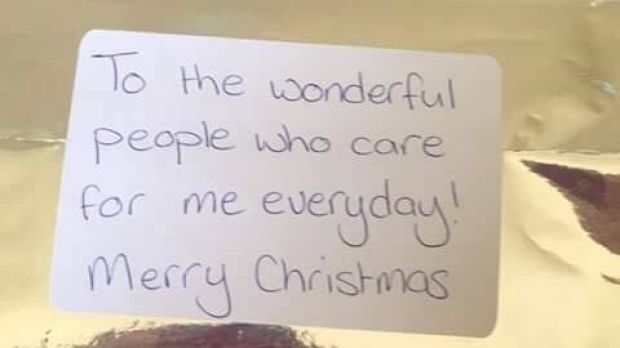 To the wonderful
people who care
for me everyday!
Merry Christmas